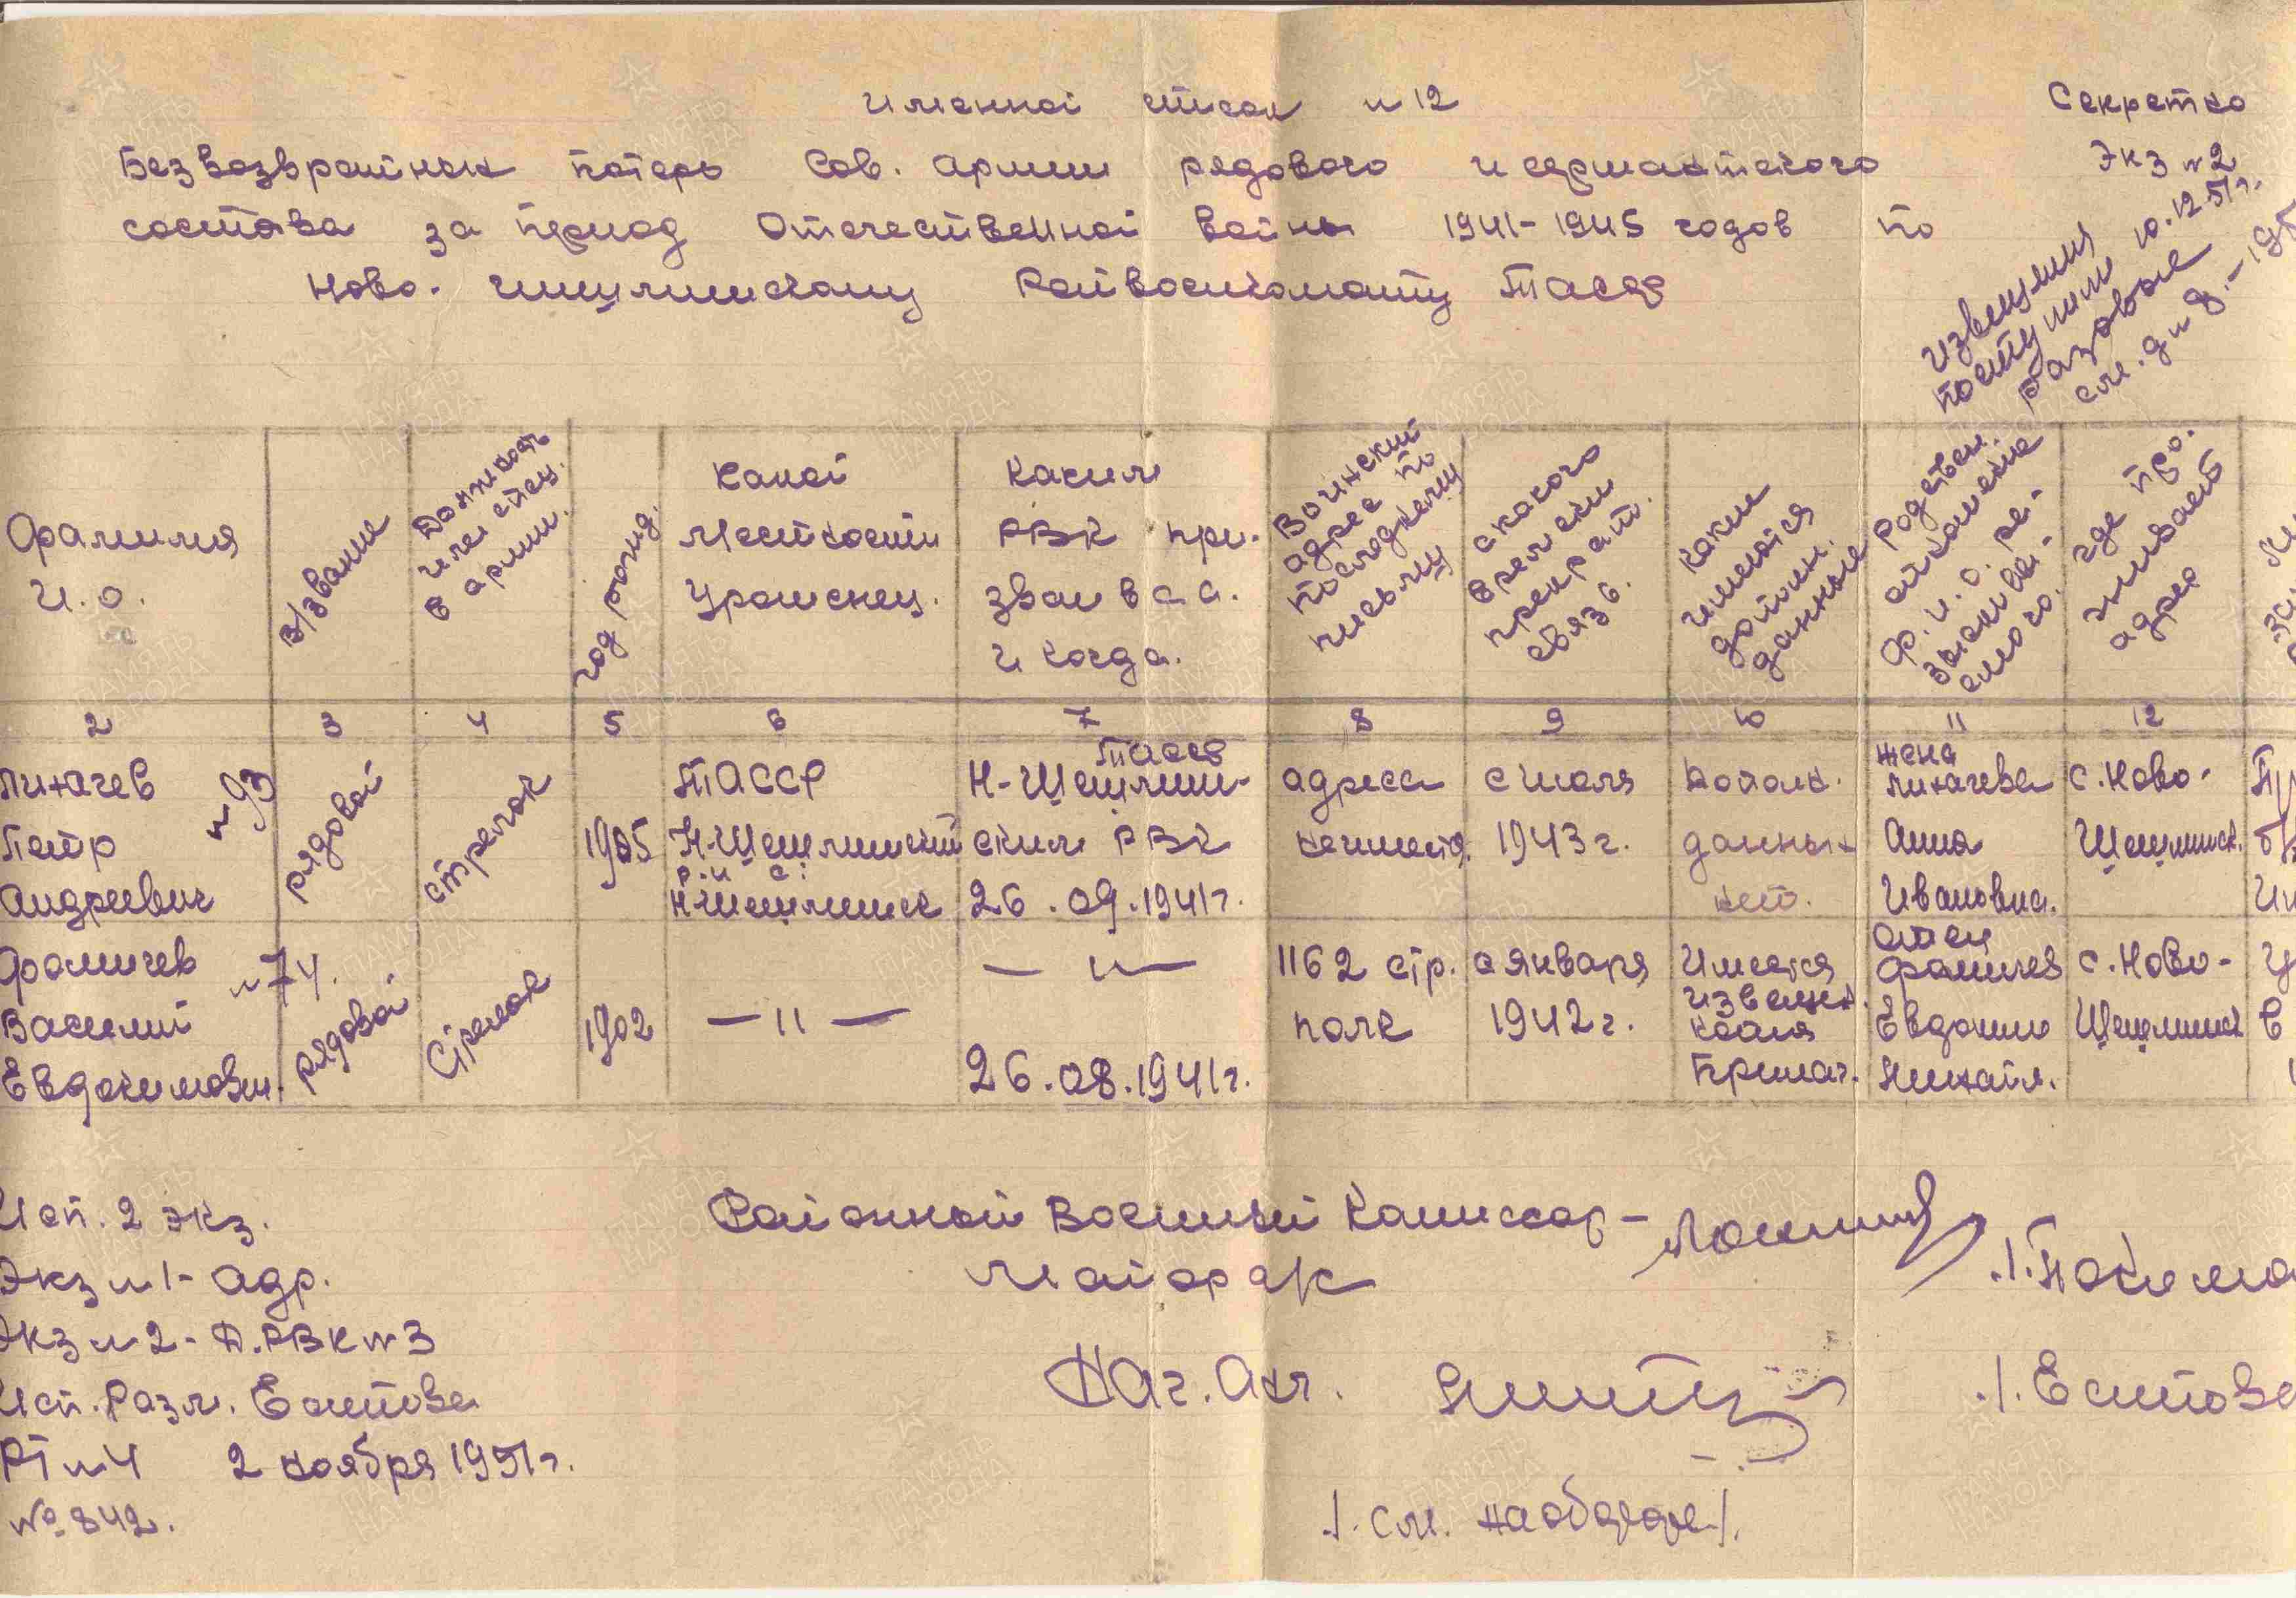 Именной список № 12
Секретно
Безвозвратных потерь Сов. Армии рядового и сержантского
Экз №2
состава за период Отечественной войны 1941-1945 годов по
Ново. Шешминскому Райвоенкомату ТАССР
Извещения
поступили 10.12.51г.
разовое
см. д № 8.-195
Фамилия
И. О.
в/звание
Должность
или спец.
в армии.
год рожд.
Какой
местности
Уроженец.
Каким
РВК при-
зван в С.А.
и когда.
Воинский
адрес по
последнему
письму
с какого
времени
прекрат.
связь.
Какие
имеются
дополн.
данные
Родствен.
отношение
Ф. И. О. ре-
где про.
живает
адрес
2 3 4 5 6 7 8 9 10 11 12
Лихачев
Петр
Андреевич
№93
рядовой
стрелок
1905
ТАССР
Н-Шешминский
р.н с.
Н-Шешминск
ТАССР
Н-Шешмин-
ским РВК
26.09.1941г.
адреса
неимеется.
с июля
1943г.
дополн.
данных
нет.
жена
Лихачева
Анна
Ивановна.
с. Ново-
Шешминск.
Фомичев
Василий
Евдокимович.
№74.
рядовой
Стрелок
1902
—II—
—II—
26.08.1941г.
1162 стр.
полк
с января
1942г.
Имеется
извещен.
копия
Прилаг.
отец
Фомичев
Евдоким
Михайл.
с. Ново-
Шешминск
Исп. 2 экз.
Экз №1- адр.
Экз №2- Д. РВК №3
Исп. Разм. Еситова
РТ №4 2 ноября 1951г.
№ 842.
Районный Военный Комиссар-
Майор а/к
Нач. Адм.
/. Еситова
/. см. наобороте/.
ПАМЯТЬ
НАРОДА